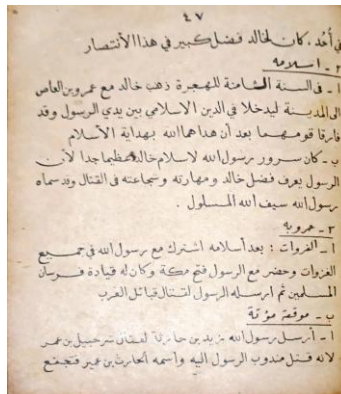 ٤٧
في أُحُد. كان لخالد فضل كبير في هذا الأنتصار
٢ - اسلامه
أ - في السنة الثامنة للهجرة ذهب خالد مع عمرو بن العاص
الى المدينة ليدخلا في الدين الاسلامي بين يدي الرسول وقد
فارقا قومهما بعد أن هداهما الله بهداية الأسلام
ب - كان سرور رسول الله لاسلام خالد عظيما جدا لأن
الرسول يعرف فضل خالد ومهارته وشجاعته في القتال وقد سماه
رسول الله سيف الله المسلول .
٣ - حروبه
أ - الغزوات : بعد أسلامه اشترك مع رسول الله في جميع
الغزوات وحضر مع الرسول فتح مكة وكان له قيادة فرسان
المسلمين ثم ارسله الرسول لقتال قبائل العرب
ب - موقعة مؤتة
أ - أرسل رسول الله زيد بن حارثة لقتال شرحبيل بن عمر
لانه قتل مندوب الرسول اليه وأسمه الحارث بن عمير فتجمع